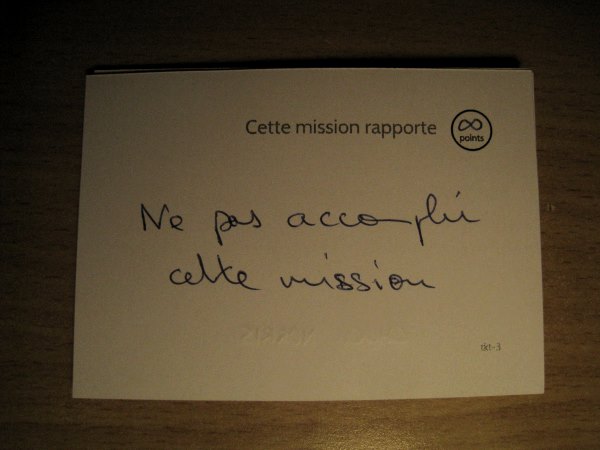 Cette mission rapporte ∞ points
Ne pas accomplir
cette mission
tkt-3